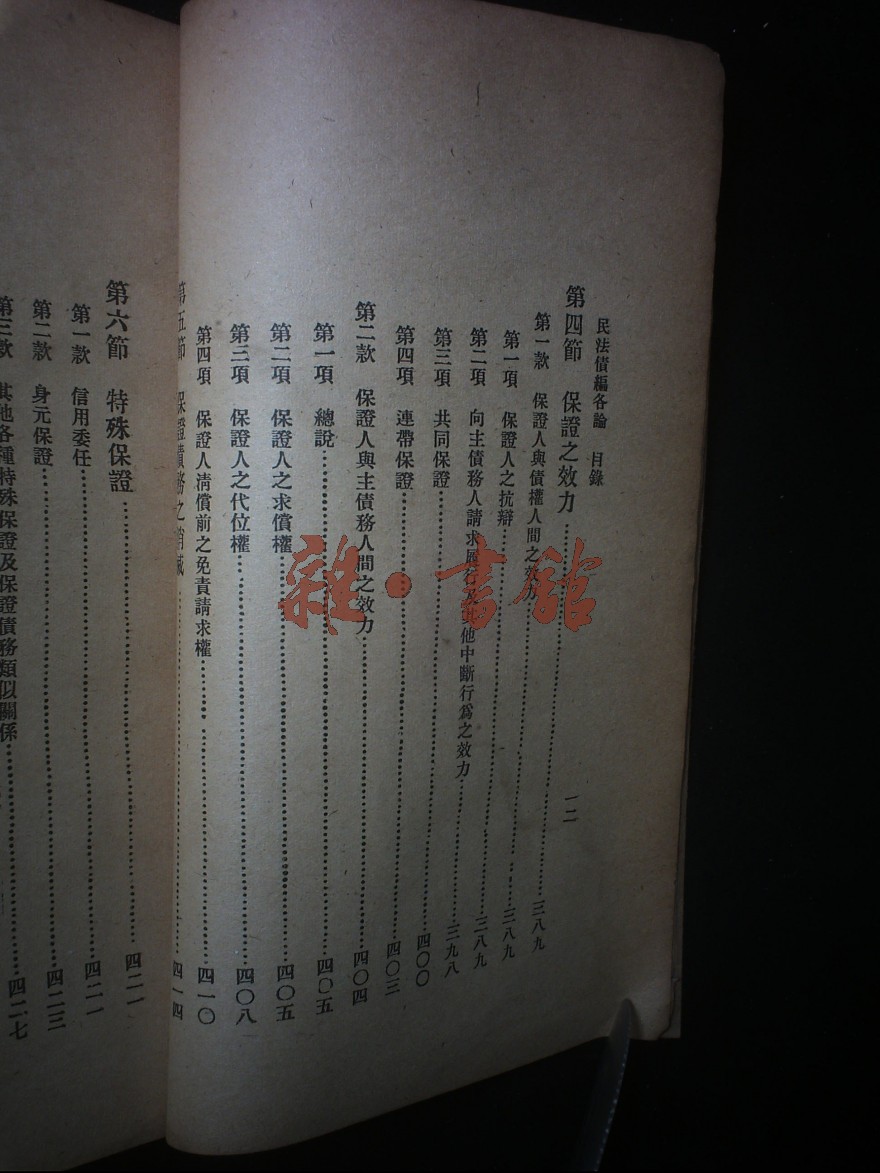 民法債編各論　目錄　一二
第四節　保證之效力……三八九
第一款　保證人與債權人間之效力……三八九
第一項　保證人之抗辯……三八九
第二項　向主債務人請求履行及其他中斷行爲之效力……三九八
第三項　共同保證……四〇〇
第四項　連帶保證……四〇三
第二款　保證人與主債務人間之效力……四〇四
第一項　總說……四〇五
第二項　保證人之求償權……四〇五
第三項　保證人之代位權……四〇八
第四項　保證人淸償前之免責請求權……四一〇
第五節　保證債務之消滅……四一四
第六節　特殊保證……四二一
第一款　信用委任……四二一
第二款　身元保證……四二三
第三款　其他各種特殊保證及保證債務類似關係……四二七
雜·書館